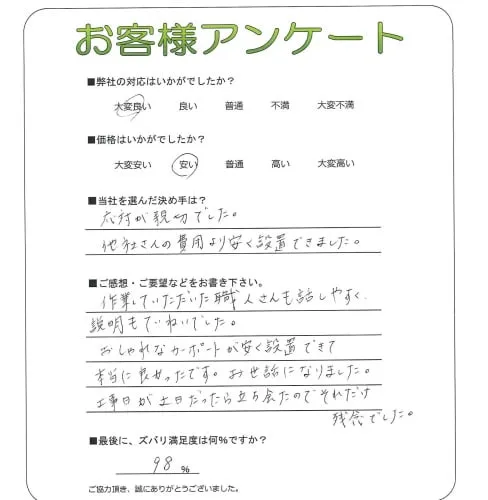 お客様アンケート
■弊社の対応はいかがでしたか？
大変良い 良い 普通 不満 大変不満
■価格はいかがでしたか？
大変安い 安い 普通 高い 大変高い
■当社を選んだ決め手は？
応対が親切でした。
他社さんの費用より安く設置できました。
■ご感想・ご要望などをお書き下さい。
作業していただいた職人さんも話しやすく、
説明もていねいでした。
おしゃれなカーポートが安く設置できて
本当に良かったです。お世話になりました。
工事日が土日だったら立ち会えたのでそれだけ
残念でした。
■最後に、ズバリ満足度は何％ですか？
98 %
ご協力頂き、誠にありがとうございました。